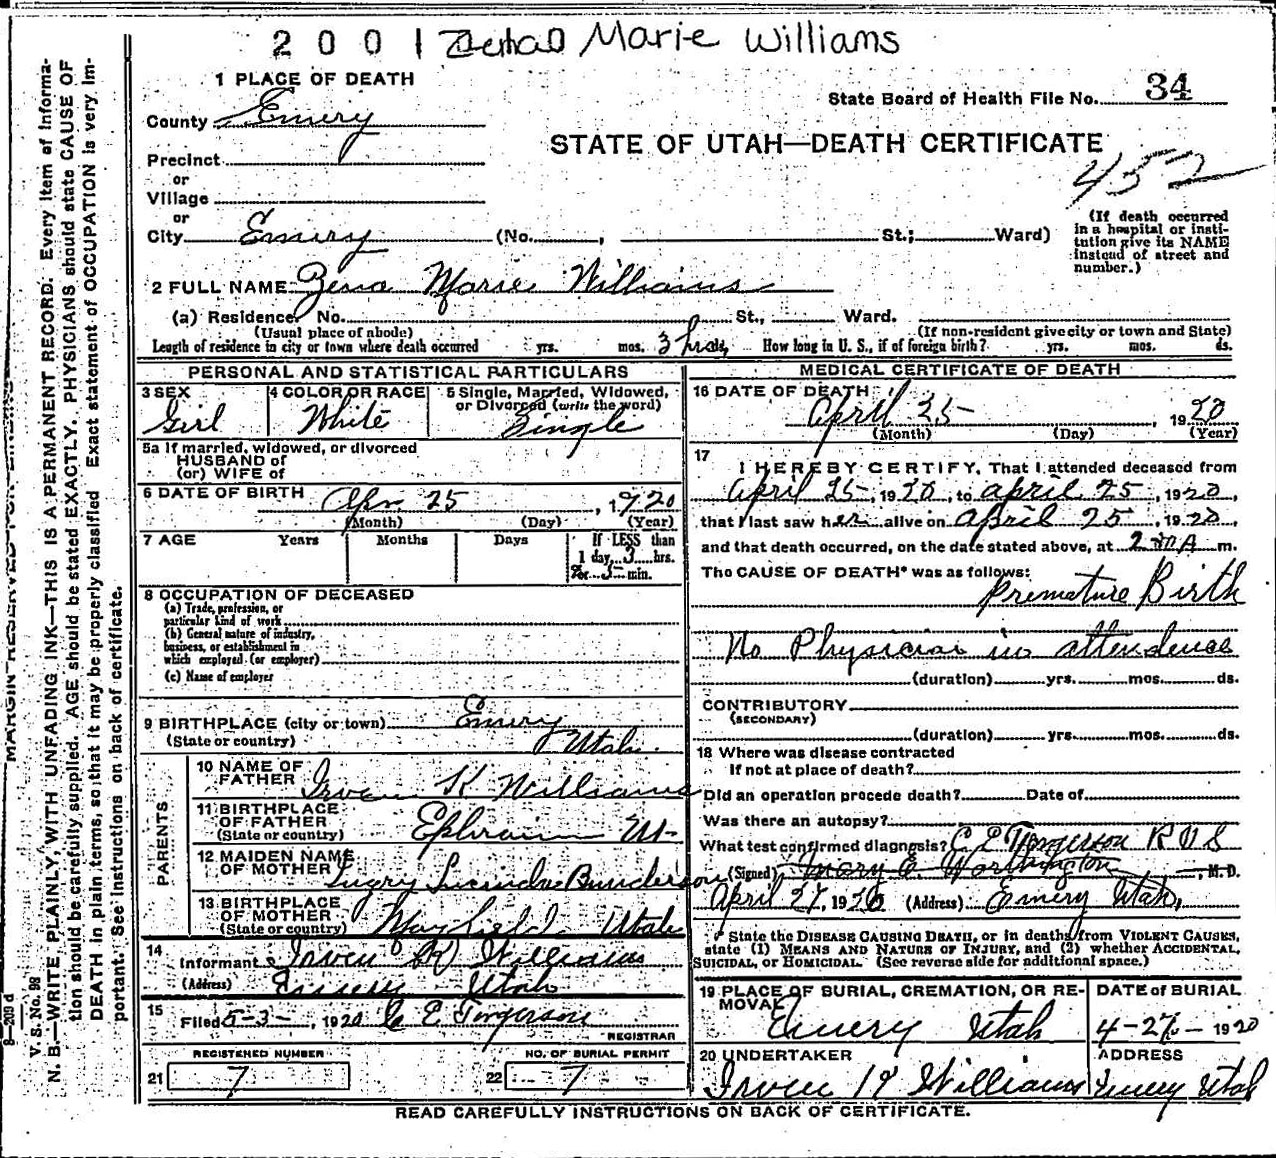 2001 Zena Marie Williams
1 PLACE OF DEATH
State Board of Health File No. 34
County Emery
STATE OF UTAH—DEATH CERTIFICATE
452
Precinct
or
Village
or
City Emery (No. , St.; Ward)
(If death occurred
in a hospital or insti-
tution give its NAME
instead of street and
number.)
2 FULL NAME Zena Marie Williams
(a) Residence. No. St., Ward.
(Usual place of abode) (If non-resident give city or town and State)
Length of residence in city or town where death occurred yrs. mos. 3 hrs. How long in U. S., if of foreign birth? yrs. mos. ds.
PERSONAL AND STATISTICAL PARTICULARS
3 SEX 4 COLOR OR RACE 5 Single, Married, Widowed,
or Divorced (write the word)
Girl White Single
5a If married, widowed, or divorced
HUSBAND of
(or) WIFE of
6 DATE OF BIRTH Apr. 25, 1920
(Month) (Day) (Year)
7 AGE Years Months Days If LESS than
1 day, 3 hrs.
or 5 min.
8 OCCUPATION OF DECEASED
(a) Trade, profession, or
particular kind of work
(b) General nature of industry,
business, or establishment in
which employed (or employer)
(c) Name of employer
9 BIRTHPLACE (city or town) Emery
(State or country) Utah.
PARENTS
10 NAME OF
FATHER Irven K Williams
11 BIRTHPLACE
OF FATHER
(State or country) Ephraim Ut-
12 MAIDEN NAME
OF MOTHER Lucinda Bunderson
13 BIRTHPLACE
OF MOTHER
(State or country) Mayfield Utah
14 Informant Irven K Williams
(Address) Emery Utah
15 Filed 5-3-, 1920 C E Torgerson
REGISTRAR
REGISTERED NUMBER NO. OF BURIAL PERMIT
21 7 22 7
MEDICAL CERTIFICATE OF DEATH
16 DATE OF DEATH
April 25, 1920
(Month) (Day) (Year)
17
I HEREBY CERTIFY, That I attended deceased from
April 25, 1920, to April 25, 1920,
that I last saw her alive on April 25, 1920,
and that death occurred, on the date stated above, at A m.
The CAUSE OF DEATH* was as follows:
Premature Birth
No Physician in attendence
(duration) yrs. mos. ds.
CONTRIBUTORY
(SECONDARY)
(duration) yrs. mos. ds.
18 Where was disease contracted
If not at place of death?
Did an operation precede death? Date of
Was there an autopsy?
What test confirmed diagnosis? C E Torgerson
(Signed) Mary E. Worthington, M. D.
April 27, 1920 (Address) Emery Utah,
* State the DISEASE CAUSING DEATH, or in deaths from VIOLENT CAUSES,
state (1) MEANS AND NATURE OF INJURY, and (2) whether ACCIDENTAL,
SUICIDAL, or HOMICIDAL. (See reverse side for additional space.)
19 PLACE OF BURIAL, CREMATION, OR RE-
MOVAL DATE of BURIAL
Emery Utah 4-27-1920
20 UNDERTAKER ADDRESS
Irven K Williams Emery Utah
READ CAREFULLY INSTRUCTIONS ON BACK OF CERTIFICATE.
MARGIN RESERVED FOR BINDING
8—209 d
V. S. No. 98
N. B.—WRITE PLAINLY, WITH UNFADING INK—THIS IS A PERMANENT RECORD. Every item of informa-
tion should be carefully supplied. AGE should be stated EXACTLY. PHYSICIANS should state CAUSE OF
DEATH in plain terms, so that it may be properly classified. Exact statement of OCCUPATION is very im-
portant. See instructions on back of certificate.